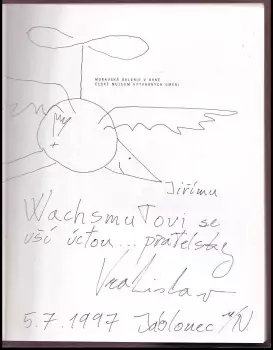 MORAVSKÁ GALERIE V BRNĚ
ČESKÉ MUZEUM VÝTVARNÝCH UMĚNÍ
Jiřímu
Wachsmutovi se
vší úctou... přátelsky
Vratislav
5.7.1997 Jablonec n/N.